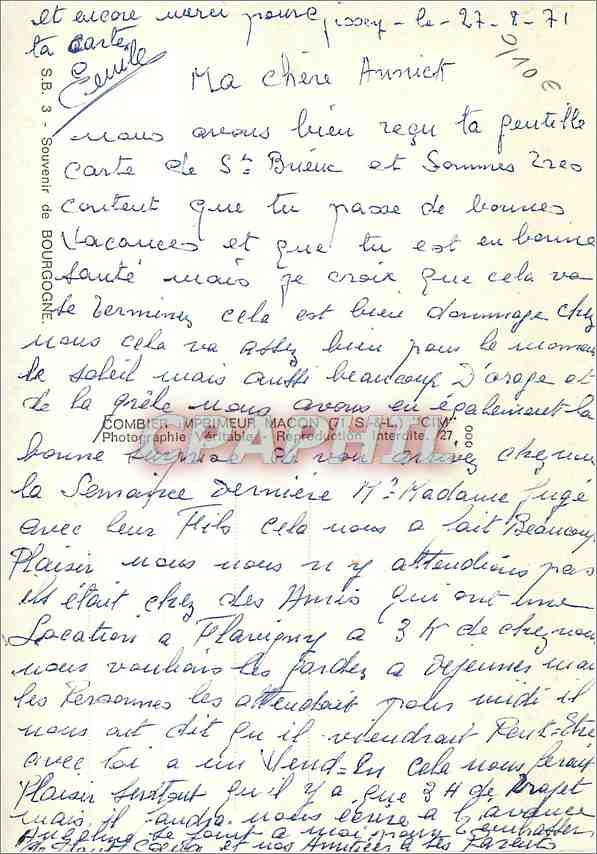 et encore merci pour
ta carte
Emile
jissey - le - 27 - 8 - 71
9/10 €
Ma chère Annick
nous avons bien reçu ta gentille
carte de St Brieuc et Sommes tres
content que tu passe de bonnes
Vacances et que tu est en bonne
Santé mais je crois que cela va
se terminer cela est bien dommage chez
nous cela va assez bien pour le moment
le soleil mais aussi beaucoup D'orage et
de la grêle nous avons eu également la
bonne surprise de voir arriver chez nous
la Semaine Dernière Mr Madame Jugé
avec leur Fils cela nous a fait Beaucoup
Plaisir nous nous n'y attendions pas
ils était chez des Amis qui ont une
Location a Flavigny a 3 K de chez nous
nous voulions les garder a dejeuner mai
les Personnes les attendait pour midi il
nous ont dit qu'il viendrait Peut-Etre
avec toi a un Wend-En cela nous ferait
Plaisir surtout qu'il y a que 2 H de trajet
mais il faudra nous écrire a l'avance
se joint a moi pour t'embrasser
et nos Amitiés a tes Parents
S.B. 3 - Souvenir de BOURGOGNE.
COMBIER IMPRIMEUR MACON (71 S.-&-L.) "CIM"
Photographie Véritable - Reproduction Interdite. 27.000
CPAPHIL